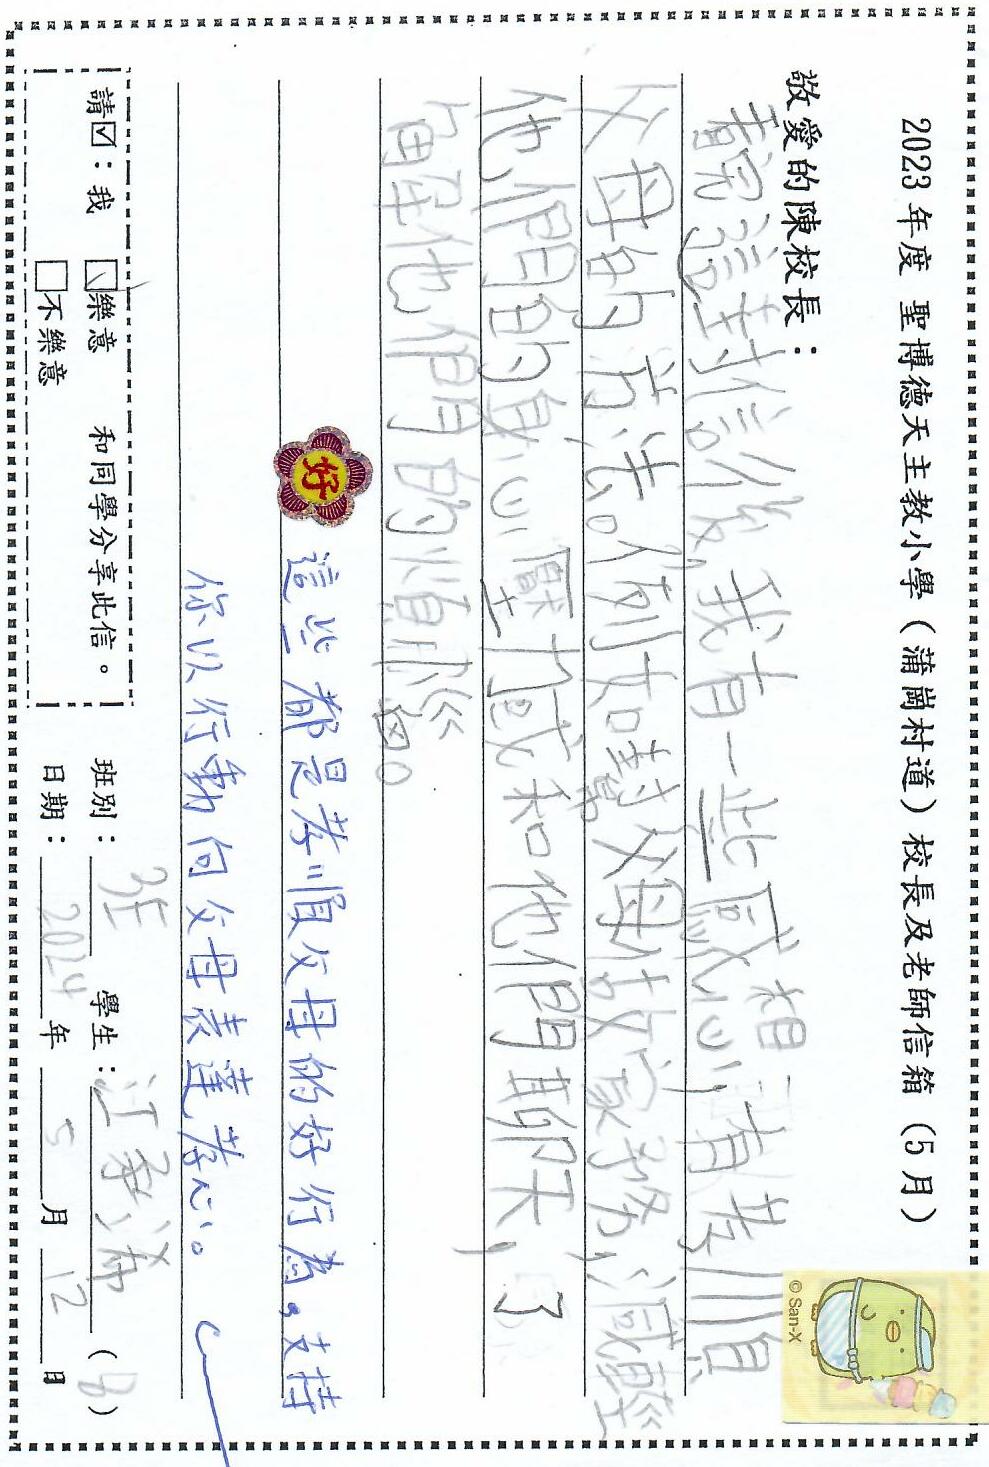 2023年度 聖博德天主教小學（蒲崗村道）校長及老師信箱（5月）
© San-X
敬愛的陳校長：
看完這封信後，我有一些感想，有孝順
父母的方法。例如幫父母做家務，減輕
他們的身心壓力或和他們聊天，了
解他們的煩惱。
好
這些都是孝順父母的好行為。支持
你以行動向父母表達孝心。
請☑：我 ☑樂意 和同學分享此信。
□不樂意
班別： 3E 學生： 江 （8）
日期： 2024 年 5 月 12 日